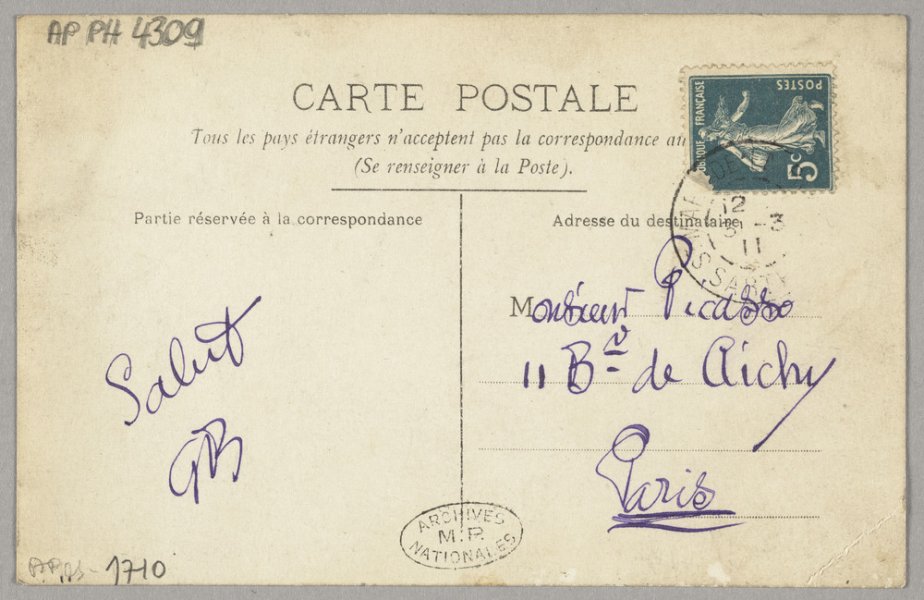 AP PH 4309
CARTE POSTALE
Tous les pays étrangers n'acceptent pas la correspondance au
(Se renseigner à la Poste).
RÉPUBLIQUE FRANÇAISE
POSTES
5c
12
31 -3
11
SARTHE
Partie réservée à la correspondance
Adresse du destinataire
Salut
GB
Monsieur Picasso
11 Bd de Clichy
Paris
ARCHIVES
M.P.
NATIONALES
1710